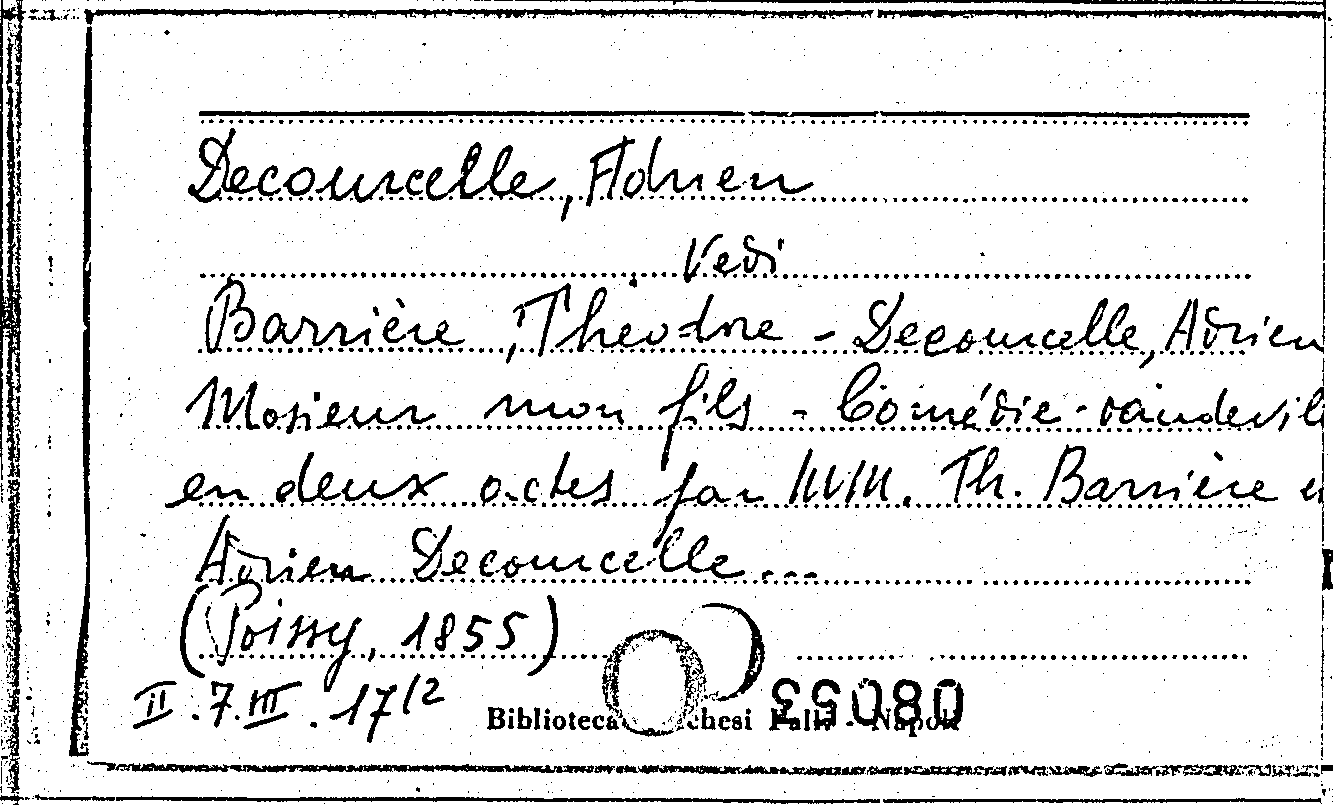 Decourcelle, Adrien
Vedi
Barrière, Théodore - Decourcelle, Adrien
Mosieur mon fils - Comédie-vaudevil
en deux actes par MM. Th. Barrière e
Adrien Decourcelle...
(Poissy, 1855)
II.7.III.17/2
Biblioteca chesi Palli - Napoli
08055